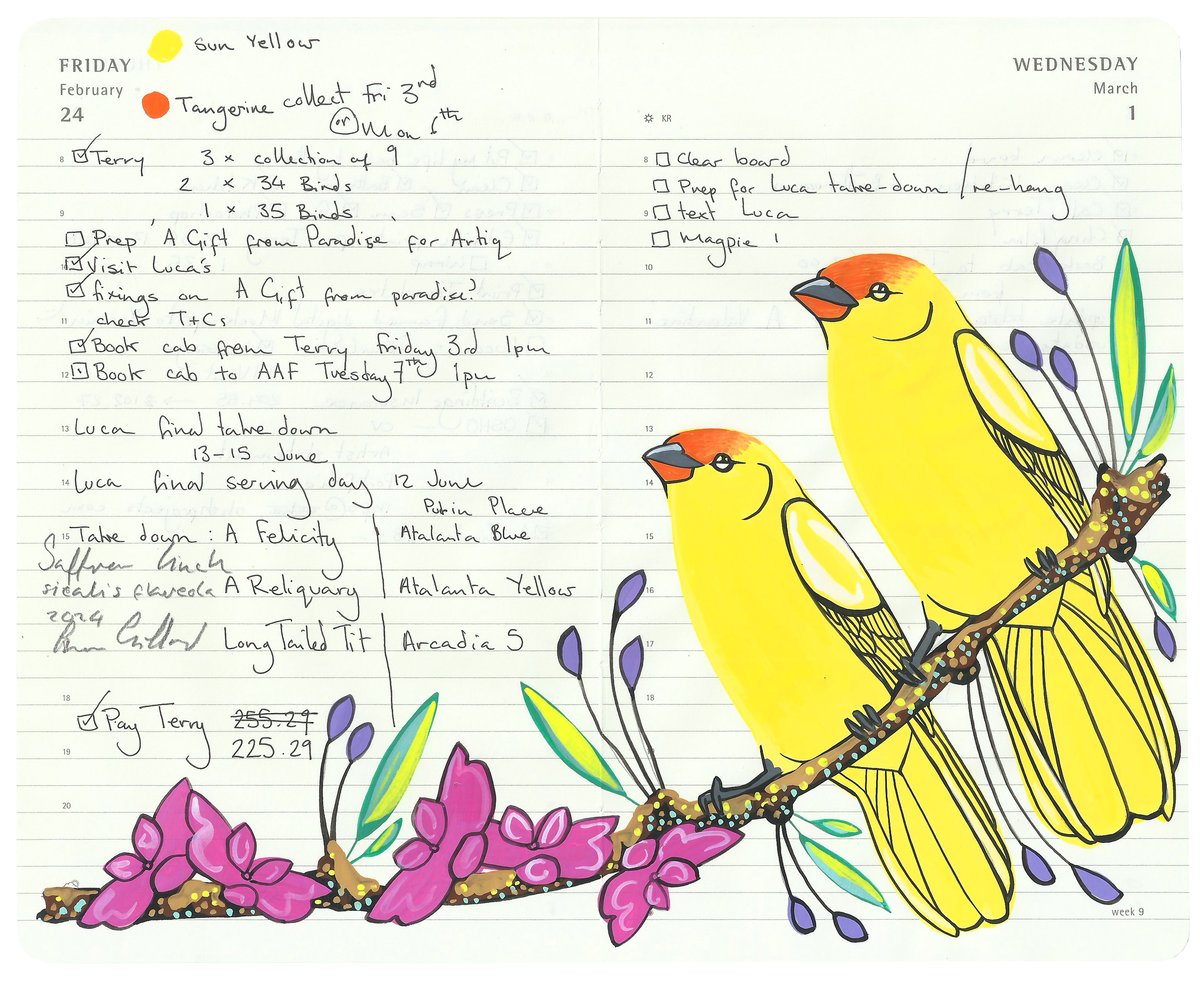 Sun Yellow
FRIDAY
February
24
Tangerine collect Fri 3rd
or Mon 6th
8 Terry 3 x collection of 9
2 x 34 Binds
9 1 x 35 Binds
Prep 'A Gift from Paradise for Artiq
10 Visit Luca's
fixings on A Gift from paradise?
11 check T+Cs
Book cab from Terry friday 3rd 1pm
12 Book cab to AAF Tuesday 7th 1pm
13 Luca final take down
13-15 June
14 Luca final serving day 12 June
Put in Place
15 Take down : A Felicity Atalanta Blue
Saffron Finch
sicalis flaveola A Reliquary Atalanta Yellow
2024
Long Tailed Tit Arcadia 5
18
Pay Terry 255.29
19 225.29
20
WEDNESDAY
March
1
KR
8 Clear board
Prep for Luca take-down / re-hang
9 text Luca
Magpie 1
10
11
12
13
14
15
16
17
18
19
week 9